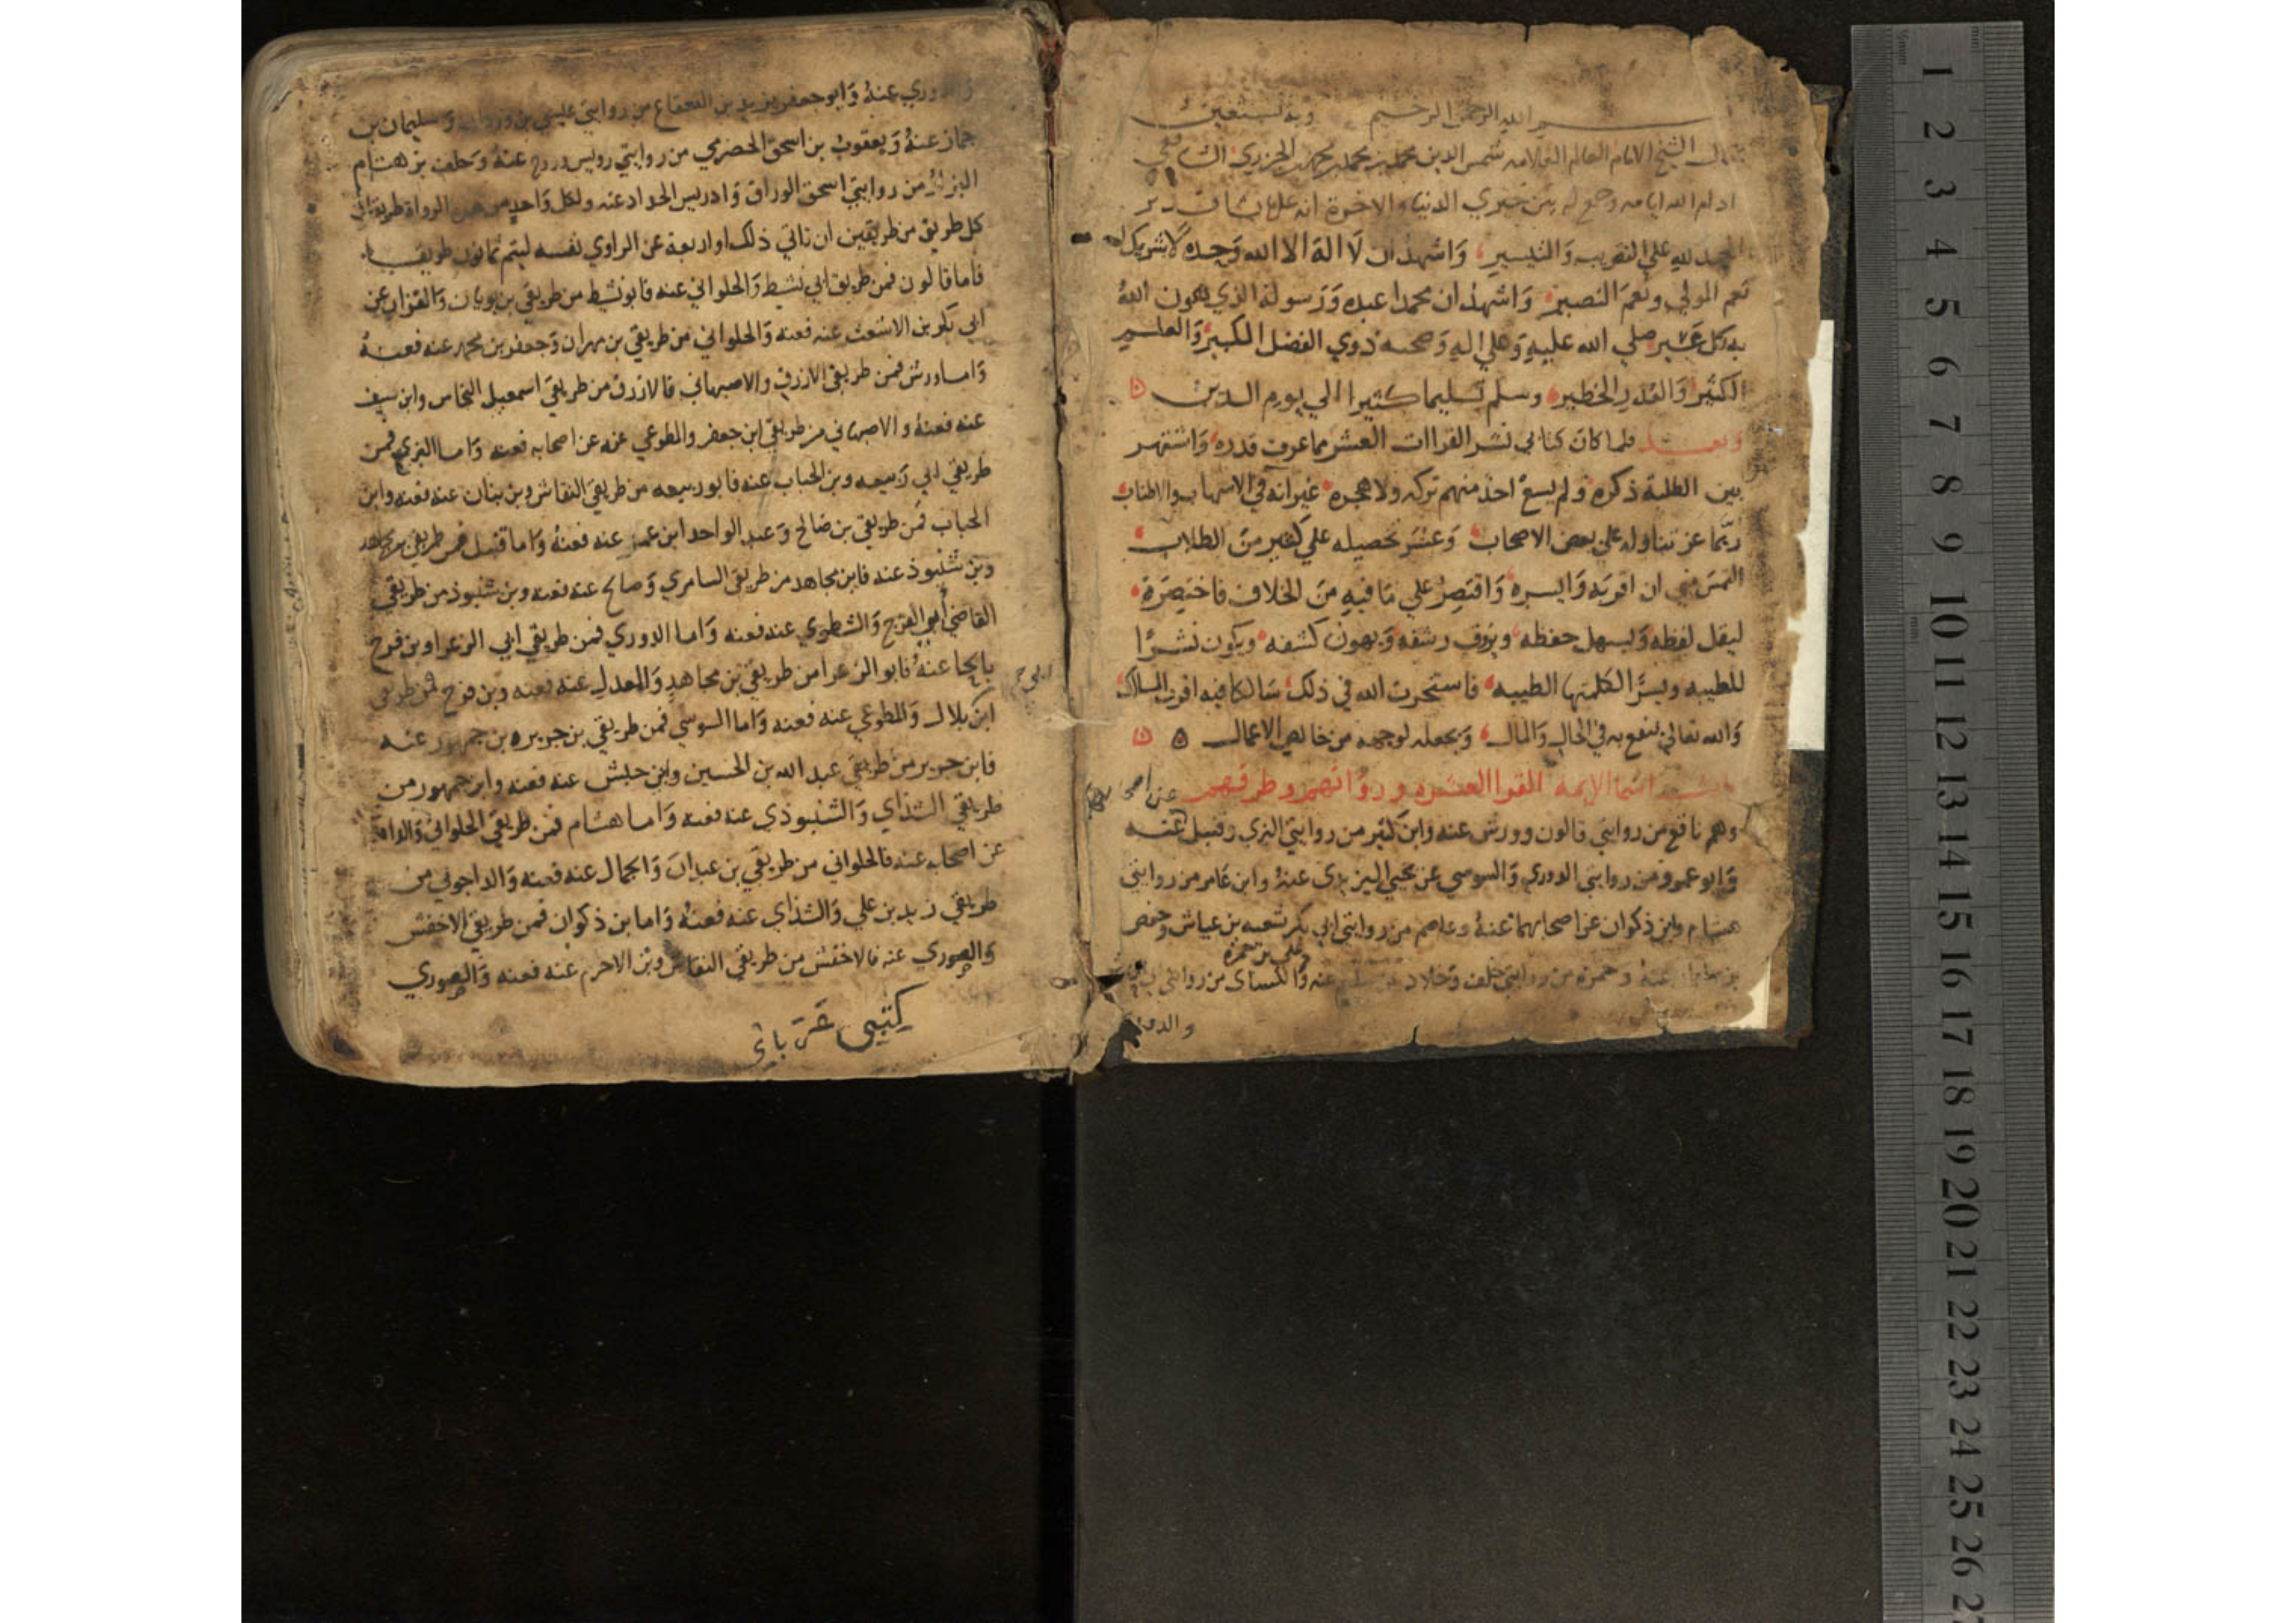 بسم الله الرحمن الرحيم وبه نستعين
قال الشيخ الامام العالم العلامه شمس الدين محمد بن محمد بن محمد الجزري الشافعي
ادام الله ايامه وجمع له بين خيري الدنيا والاخرة انه على يشا قدير
الحمد لله علي التقريب والتيسير وَاشهد ان لَا اله الا الله وَحده لاشريك له
نعم المولي ونعم النصير وَاشهد ان محمدا عبده وَرَسوله الذي يهون الله
به كل عسير صلي الله عليه وَعلي اله وَصحبه ذوي الفضل الكبير وَالعلم
الكثير وَالقدر الخطير وسلم تسليما كثيرا الي يوم الدين
وبعد فلما كان كتابي نشر القراات العشر مما عرف قدره وَاشتهر
بين الطلبة ذكره ولم يسع احد منهم تركه ولا هجره غير انه في الاسهاب والاطناب
ربّما عز تناوله علي بعض الاصحاب وَعسر تحصيله علي كثير من الطلاب
التمس مني ان اقربه وَايسره وَاقتصر علي مَا فيه منَ الخلاف فاختصرَة
ليقل لفظه وَليسهل حفظه ويروق رشفه وَيهون كشفه ويكون نشرًا
للطيبه ويسرّا لكلمتها الطيبه فاستخرت الله في ذلك سَالكا فيه اقرب المسالك
وَالله تعالي ينفع به في الحال وَالمال وَيجعله لوجهه من خالص الاعمال
باب اسما الايمة القرا العشره ورواتهم وطرقهم عن اصحابهما
وهم نافع من روايتي قالون وورش عنه وابن كثير من روايتي البزي وقنبل عنه
وَابو عمرو من روايتي الدوري وَالسوسي عن يحيي اليزيدي عنهُ وابن عَامر من روايتي
هشام وابن ذكوان عن اصحابهما عنهُ وعاصم من روايتي ابي بكر شعبه بن عياش وَحفص
بن سليمان عنهُ وحمزه من روايتي خلف وَخلاد عن سليم عنه وَالكساي من روايتي ابي
والدوري
وَالدوري عنهُ وَابو جعفر يزيد بن القعقاع من روايتي عيسي بن وردان وَسليمان بن
جماز عنهُ وَيعقوب بن اسحق الحضرمي من روايتي رويس وروح عنهُ وَخلف بن هشام
البزار من روايتي اسحق الوراق وَادريس الحداد عنه ولكل وَاحد من هولا الرواة طريقان
كل طريق من طريقين ان تاتي ذلك او اربعة عن الراوي نفسه ليتم ثمانون طريقا
فاما قالون فمن طريق ابي نشيط وَالحلواني عنه فابو نشيط من طريقي بن بويان وَالقزاز عن
ابي بكر بن الاشعث عنه فعنه وَالحلواني من طريقي بن مهران وَجعفر بن محمد عنه فعنهُ
وَاما ورش فمن طريقي الازرق والاصبهاني فالازرق من طريقي اسمعيل النحاس وابن سيف
عنه فعنهُ والاصبهاني من طريقي ابن جعفر والمطوعي عنه عن اصحابه فعنه وَاما البزي فمن
طريقي ابي رَبيعه وبن الحباب عنه فابو ربيعه من طريقي النقاش وبن بنان عنه فعنه وابن
الحباب فمن طريقي بن صَالح وَعبد الواحد ابن عمر عنه فعنهُ وَاما قنبل فمن طريقي بن مجاهد
وبن شنبوذ عنه فابن مجاهد من طريقي السامري وَصالح عنه فعنه وبن شنبوذ من طريقي
القاضي أبي الفرج وَالشطوي عنه فعنه وَاما الدوري فمن طريقي ابي الزعرا وبن فرح
بالحا عنهُ فابو الزعرا من طريقي بن مجاهد وَالمعدل عنه فعنه وبن فرح فمن طريقي
ابن بلال وَالمطوعي عنه فعنه وَاما السوسي فمن طريقي بن جرير وبن جمهور عنه
فابن جرير من طريقي عبد الله بن الحسين وابن حبش عنه فعنه وابن جمهور من
طريقي الشذاي وَالشنبوذي عنه فعنه وَاما هشام فمن طريقي الحلواني وَالداجوني
عن اصحابه عنه فالحلواني من طريقي بن عبدان وَالجمال عنه فعنه وَالداجوني من
طريقي زيد بن علي وَالشذاي عنه فعنهُ وَاما بن ذكوان فمن طريقي الاخفش
والصوري عنه فالاخفش من طريقي النقاش وبن الاخرم عنه فعنه وَالصوري
1 2 3 4 5 6 7 8 9 10 11 12 13 14 15 16 17 18 19 20 21 22 23 24 25 26